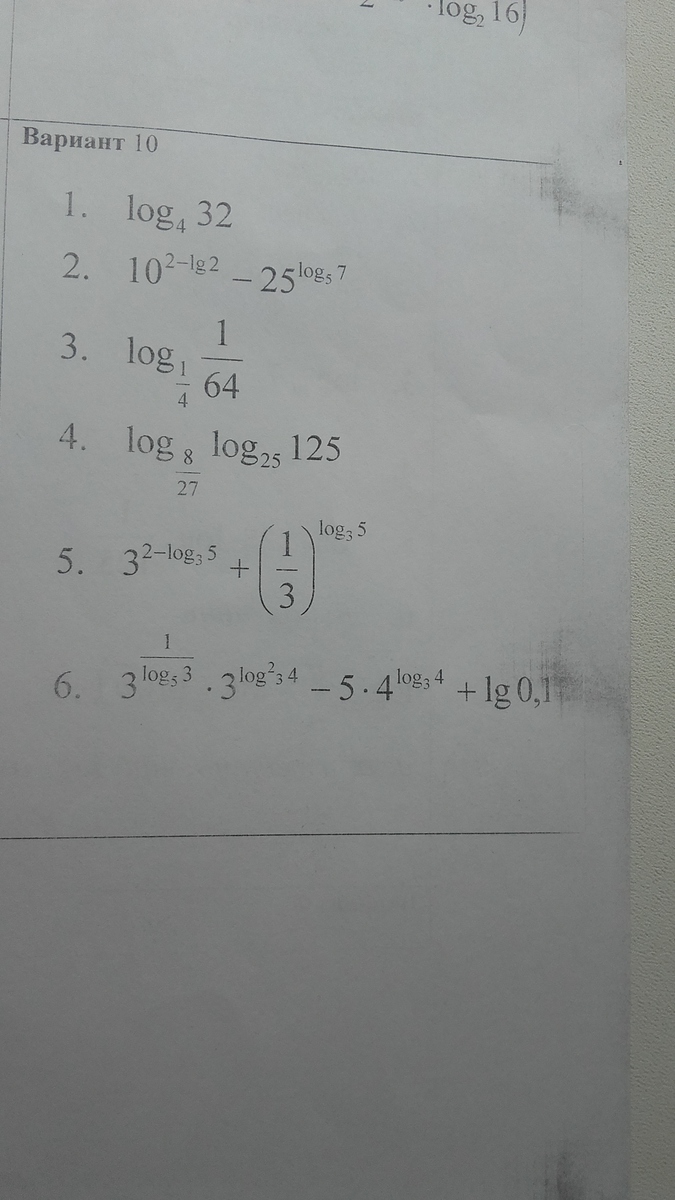 · log₂ 16)
Вариант 10
1. log₄ 32
2. 10^{2−lg 2} − 25^{log₅ 7}
3. log_{1/4} 1/64
4. log_{8/27} log₂₅ 125
5. 3^{2−log₃ 5} + (1/3)^{log₃ 5}
6. 3^{1/log₅ 3} · 3^{log²₃ 4} − 5 · 4^{log₃ 4} + lg 0,1